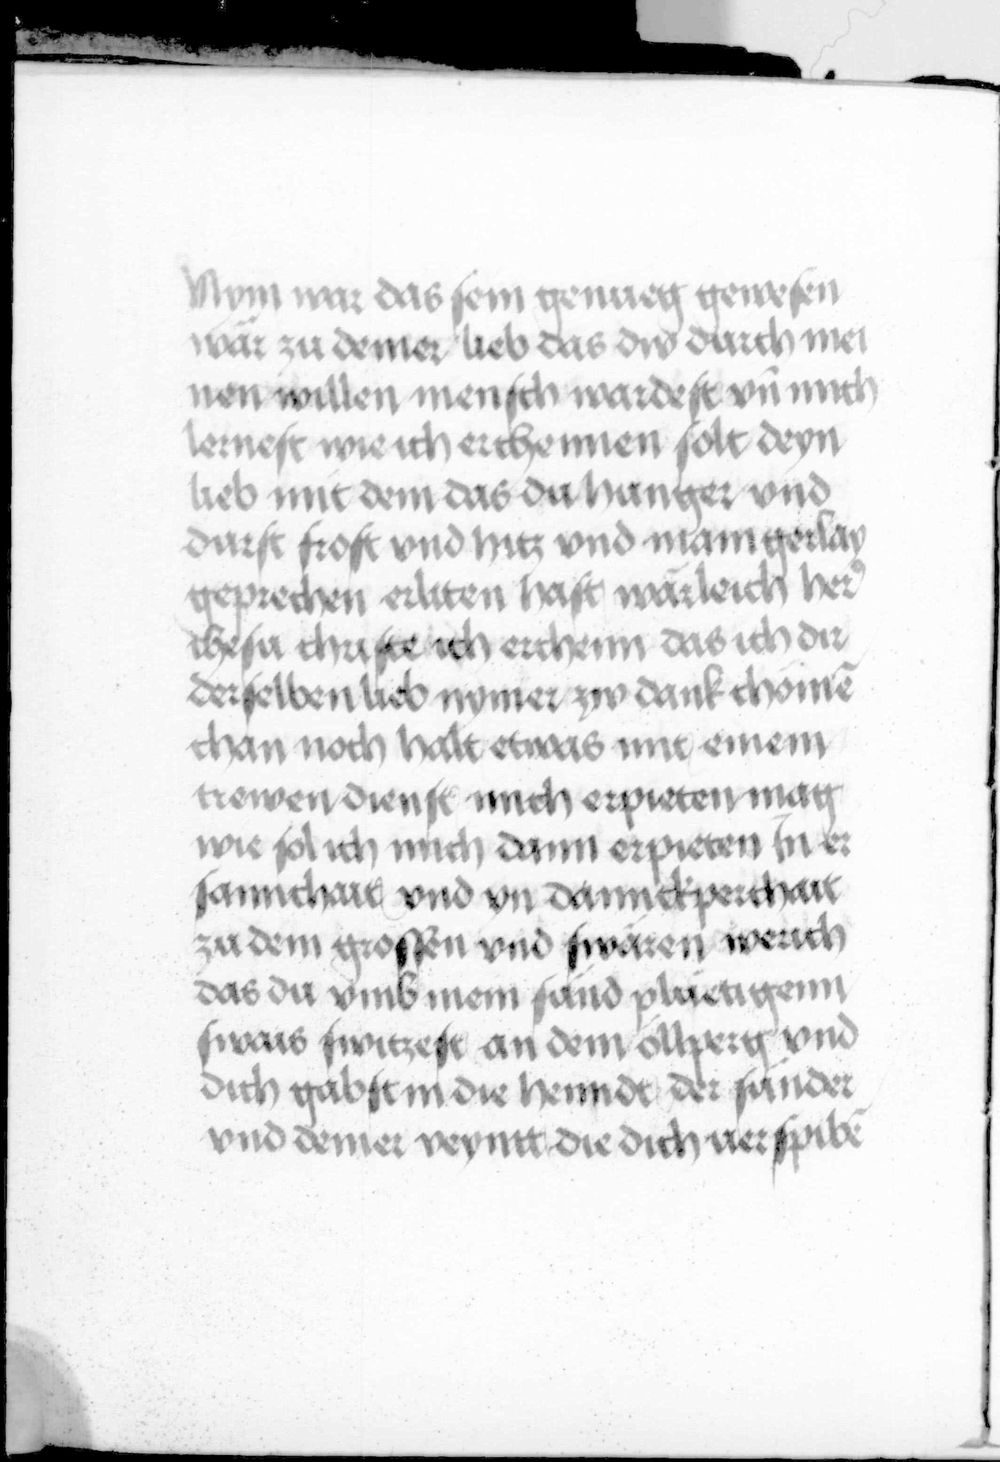 Nym war das sein genueg gewesen
wär zu deiner lieb das dw durch mei
nen willen mensch wardest vn̄ mich
lernest wie ich erchennen solt deyn
lieb mit dem das du hunger vnd
durst frost vnd hitz vnd manigerlay
geprechen erliten hast wärleich her
ihesu christe ich erchenn das ich dir
derselben lieb nymer zw dank chömē
chan noch halt etwas mit einem
trewen dienst mich erpieten mag
wie sol ich mich dann erpieten in er
samchait vnd yn dannckperchait
zu dem grossen vnd swären werich
das du vmb mein sünd plüetigenn
swais switzest an dem öllperg vnd
dich gabst in die henndt der sünder
vnd deiner veyntt die dich verspibē